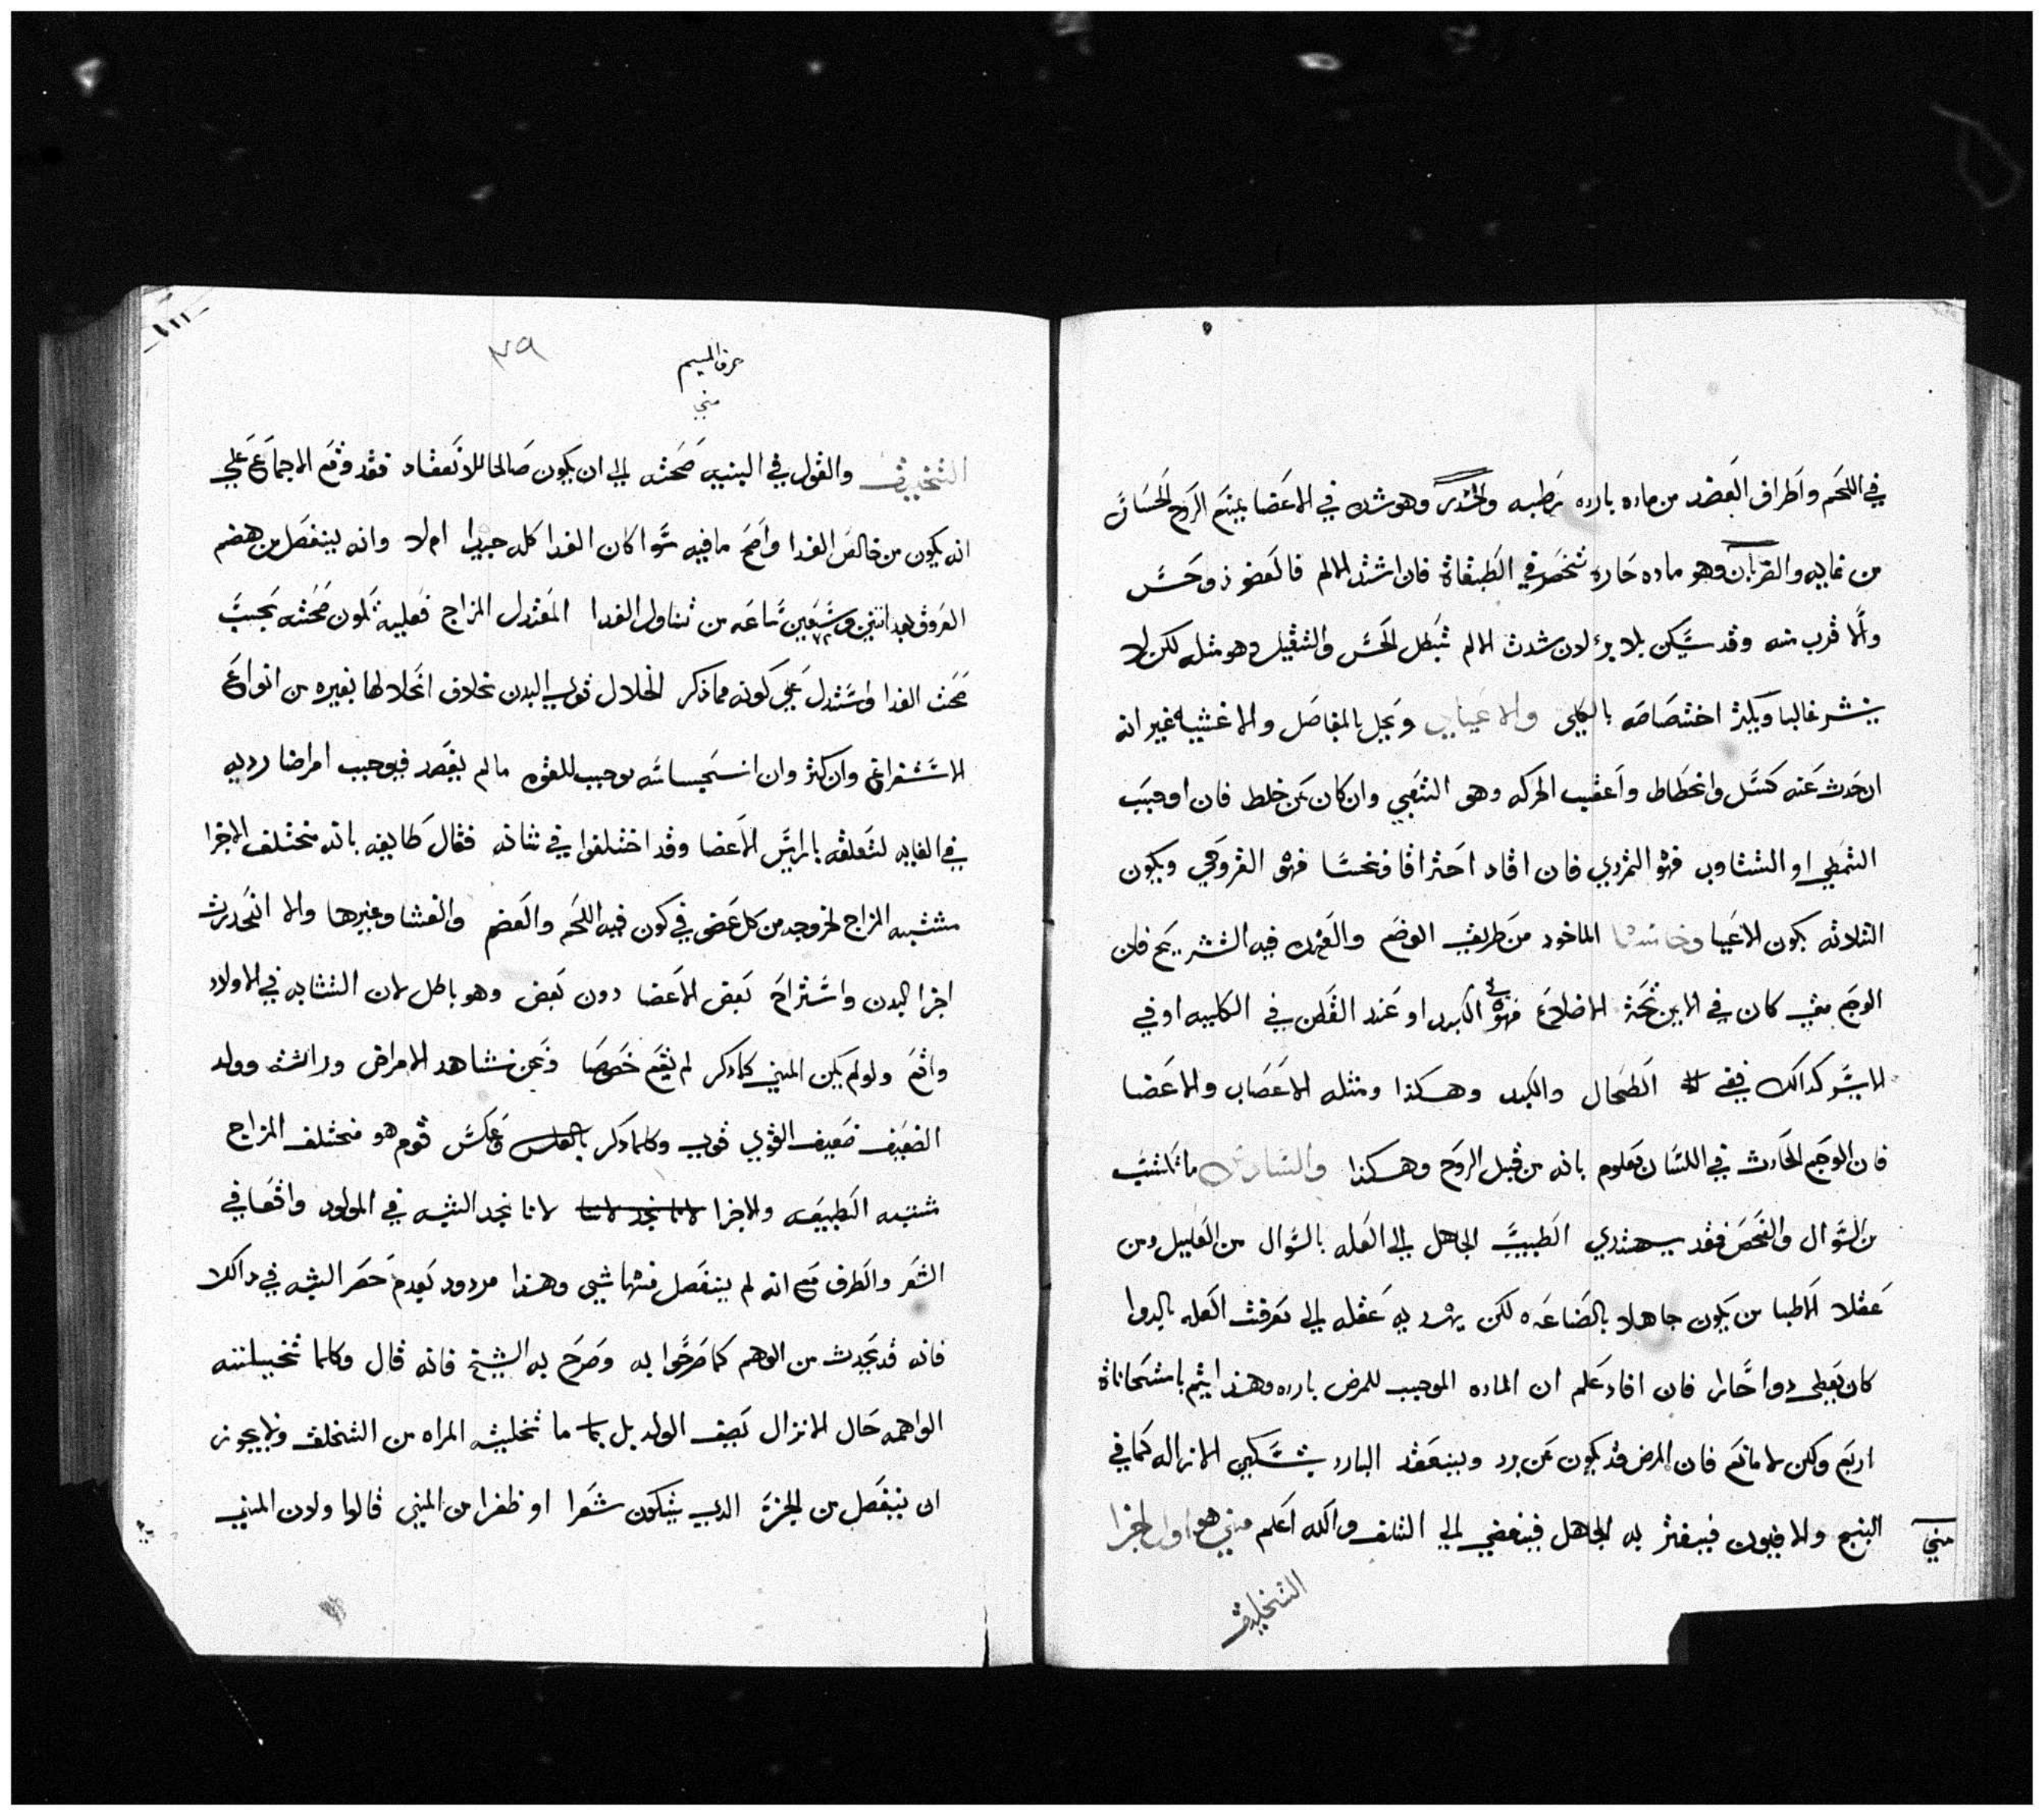 في اللحم واطراف العضد من ماده بارده رطبه والخدري وهو شده في الاعضا يمنع الروح الحساس
من غايبه والضربان وهو ماده حاره تنحصر في الطبقاة فان اشتد الالم فالعضو ذو حس
والا قرب منه وقد يسكن بلا برؤ لان شدت الالم تبطل الحس والثقيل وهو مثله لكن لا
ينشر غالبا ويكثر اختصاصه بالكلى والاعيايي ويحل بالمفاصل والاغشيه غير انه
ان حدث عنه كسل وانحطاط واعقب الحركه وهو التعبي وان كان عن خلط فان اوجب
التمطي او التثاوب فهو التمددي فان افاد احتراقا ونخسا فهو القروحي ويكون
الثلاثه يكون الاعيا وخامسها الماخود من طريق الوضع والعمده فيه التشريح فان
الوجع متي كان في الايمن تحت الاضلاع فهو في الكبد او عند القطن في الكليه او في
الايسر كدالك ففي الطحال والكبد وهكذا ومثله الاعصاب والاعضا
فان الوجع الحادث في اللسان معلوم بانه من قبل الروح وهكذا والسادس ما يكتسب
من السوال والفحص فقد يهتدي الطبيب الجاهل الى العله بالسوال من العليل ومن
عقلا الاطبا من يكون جاهلا بالصناعه لكن يهديه عقله الي معرفت العله بالدوا
كان يعطى دوا حارا فان افاد علم ان الماده الموجب للمرض بارده وهذا يتم بامتحاناة
اربع ولكن لا مانع فان المرض قد يكون عن برد وينعقد البارد بتسكين الازاله كما في
البنج والافيون فيغتر به الجاهل فيفضي الى التلف والله اعلم مني هو اول اجزا
مني
التخليق
حرف الميم
مني
٢٩
التخليق والقول في البنيه صحته الى ان يكون صالحا للانعقاد فقد وقع الاجماع على
انه يكون من خالص الغدا واصح ما فيه سوا كان الغدا كله جيدا ام لا وانه ينفصل من هضم
العروق بعد اثنين وسبعين ساعه من تناول الغدا المعتدل المزاج فعليه تكون صحته بحسب
صحت الغدا واستدل على كونه مما ذكر انحلال قوي البدن بخلاف انحلالها بغيره من انواع
الاستفراغ وان كثر وان انحباسه يوجب للقوه ما لم يفصد فيوجب امراضا رديه
في الغايه لتعلقه بالرايس الاعضا وقد اختلفوا في شانه فقال طايفه بانه مختلف الاجزا
مشتبه المزاج لخروجه من كل عضو في كون فيه اللحم والعضم والغشا وغيرها والا اتحدت
اجزا البدن واستراح بعض الاعضا دون بعض وهو باطل لان التشابه في الاولاد
واقع ولو لم يكن المني كما دكر لم يقع خصوصا ونحن نشاهد الامراض وراثه وولد
الضعيف ضعيف القوي قوي وكلما دكر بالعكس وعكس قوم هو مختلف المزاج
مشتبه الطبيعه والاجزا لانا نجد لاننا لانا نجد الشبه في المولود واقعا في
الشعر والطرف مع انه لم ينفصل منها شي وهذا مردود بعدم حصر الشبه في دالك
فانه قد يحدث من الوهم كما صرحوا به وصرح به الشيخ فانه قال وكلما تخيلته
الواهمه حال الانزال تصف الولد بل بما ما تخليته المراه من التخلق ولا يجوز
ان ينفصل من الجزء الدي يتكون شعرا او ظفرا من المني قالوا ولان المني